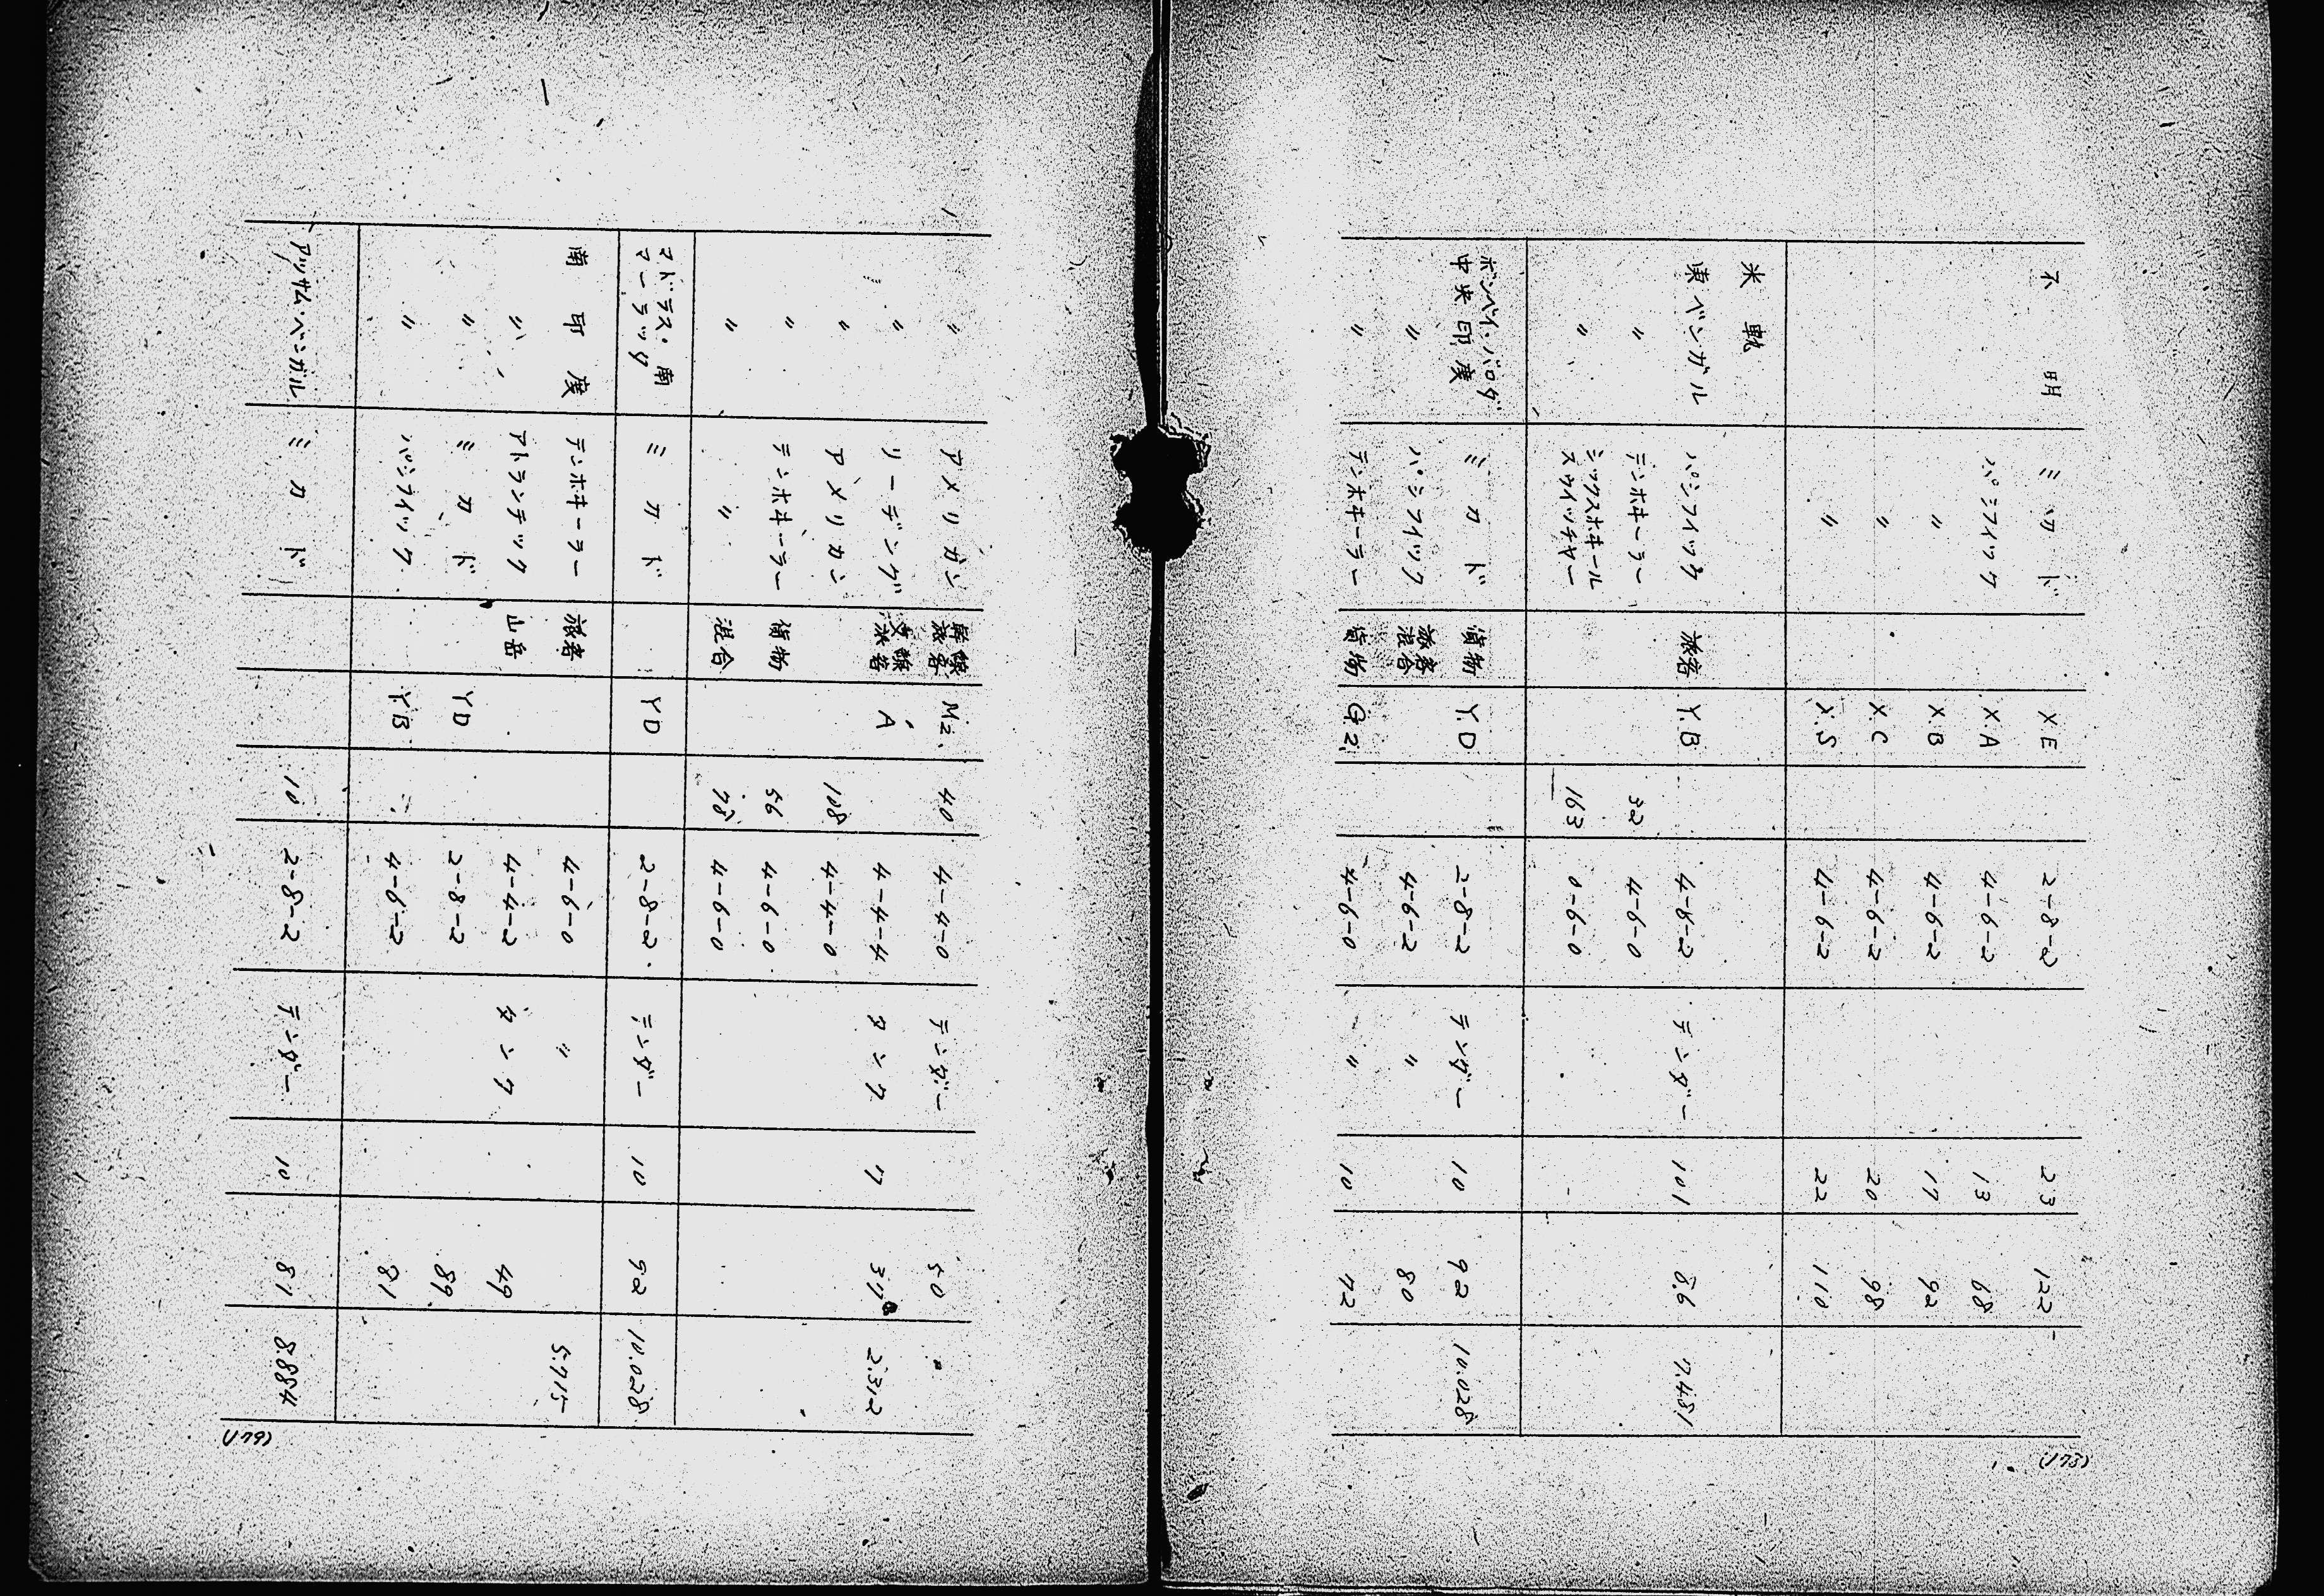 不明 ミカド X.E 2-8-2 23 122
パシフイック X.A 4-6-2 13 68
〃 X.B 4-6-2 17 92
〃 X.C 4-6-2 20 98
〃 X.S 4-6-2 22 110
米軌
東ベンガル パシフイック 旅客 Y.B 4-6-2 テンダー 101 86 7.481
〃 テンホヰーラー 32 4-6-0
〃 シックスホヰール スウイッチヤー 163 0-6-0
ボンベイ・バロダ 中央印度 ミカド 貨物 Y.D 2-8-2 テンダー 10 92 10.028
〃 パシフイック 旅客 混合 4-6-2 〃 80
〃 テンホヰーラー 貨物 G.2. 4-6-0 〃 10 72
(173)
〃 アメリカン 幹線 旅客 M2. 40 4-4-0 テンダー 50
〃 リーデング 支線 旅客 A 4-4-4 タンク 7 31 2.312
〃 アメリカン 108 4-4-0
〃 テンホヰーラー 貨物 56 4-6-0
〃 〃 混合 78 4-6-0
マドラス・南 マーラッタ ミカド YD 2-8-2 テンダー 10 92 10.028
南印度 テンホヰーラー 旅客 4-6-0 〃 5.715
〃 アトランチック 山岳 4-4-2 タンク 49
〃 ミカド YD 2-8-2 89
〃 パシフイック YB 4-6-2 81
アッサム・ベンガル ミカド 10 2-8-2 テンダー 10 81 8.884
(179)